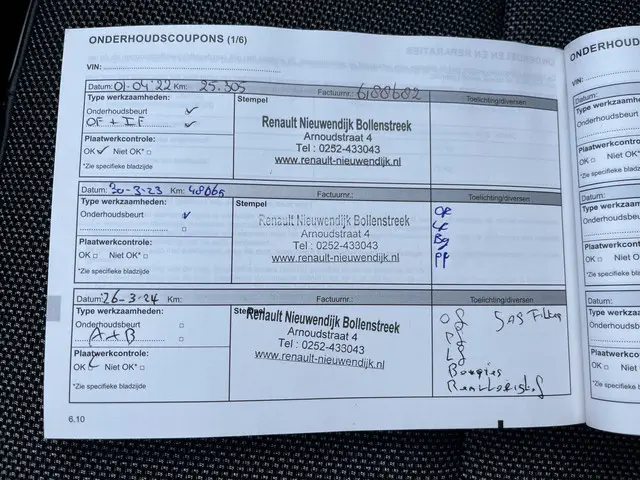 ONDERHOUDSCOUPONS (1/6)
VIN:
Datum: 01-04'22 Km: 25.305 Factuurnr.: 6188682 Toelichting/diversen
Type werkzaamheden:
Onderhoudsbeurt
OF + IF
Plaatwerkcontrole:
OK Niet OK*
*Zie specifieke bladzijde
Stempel
Renault Nieuwendijk Bollenstreek
Arnoudstraat 4
Tel : 0252-433043
www.renault-nieuwendijk.nl
Datum: 30-3-23 Km: 48065 Factuurnr.: Toelichting/diversen
Type werkzaamheden:
Onderhoudsbeurt
Plaatwerkcontrole:
OK Niet OK*
*Zie specifieke bladzijde
Stempel
Renault Nieuwendijk Bollenstreek
Arnoudstraat 4
Tel : 0252-433043
www.renault-nieuwendijk.nl
PP
Datum: 26-3-24 Km: Factuurnr.: Toelichting/diversen
Type werkzaamheden:
Onderhoudsbeurt
A+B
Plaatwerkcontrole:
OK Niet OK*
*Zie specifieke bladzijde
Stempel
Renault Nieuwendijk Bollenstreek
Arnoudstraat 4
Tel : 0252-433043
www.renault-nieuwendijk.nl
Bougies
6.10
ONDERHOUDSC
VIN:
Datum:
Type werkzaamhe
Onderhoudsbeurt
Plaatwerkcontrole:
OK Niet OK*
*Zie specifieke bladzij
Datum:
Type werkzaam
Onderhoudsbeurt
Plaatwerkcontro
OK Niet OK*
*Zie specifieke blad
Datum:
Type werkzaa
Onderhoudsbeu
Plaatwerkcont
OK Niet OK
*Zie specifieke b